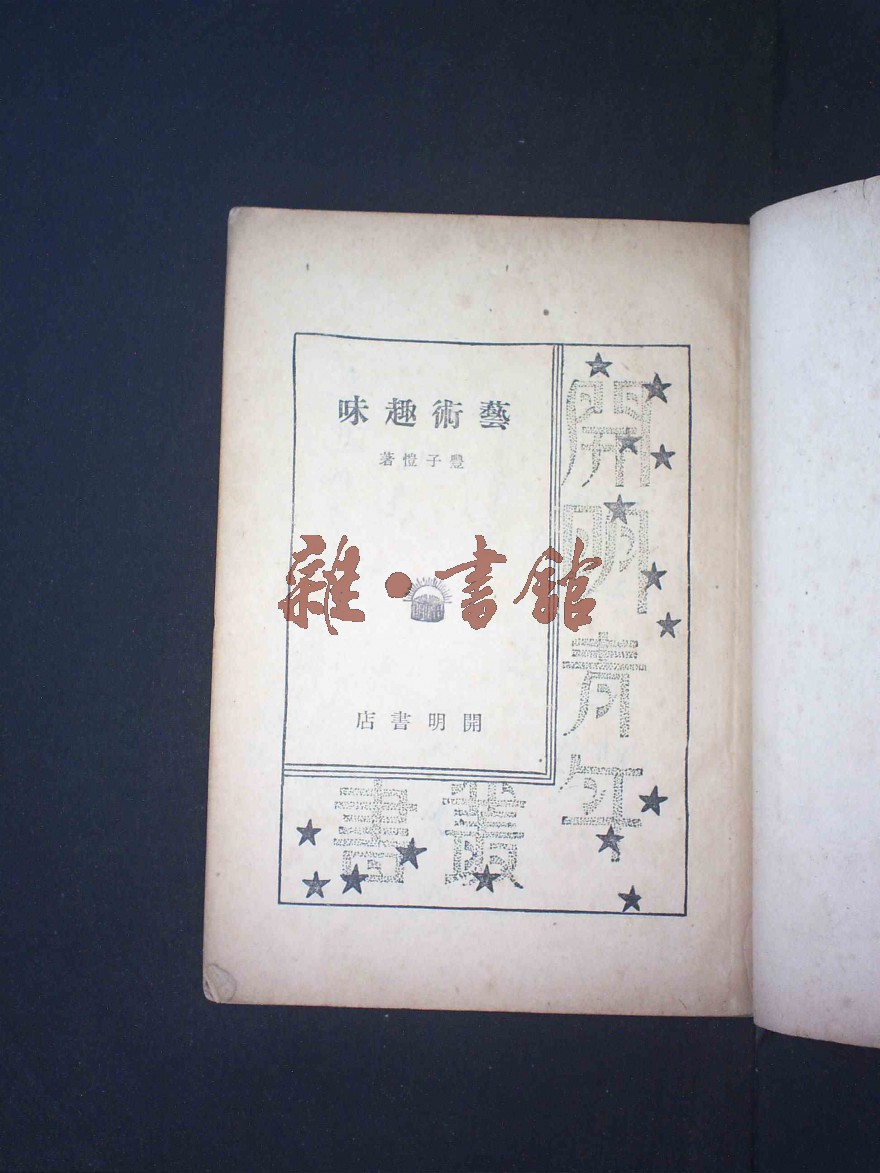 藝術趣味
豐子愷著
雜·書館
開明書店
開明青年
叢書